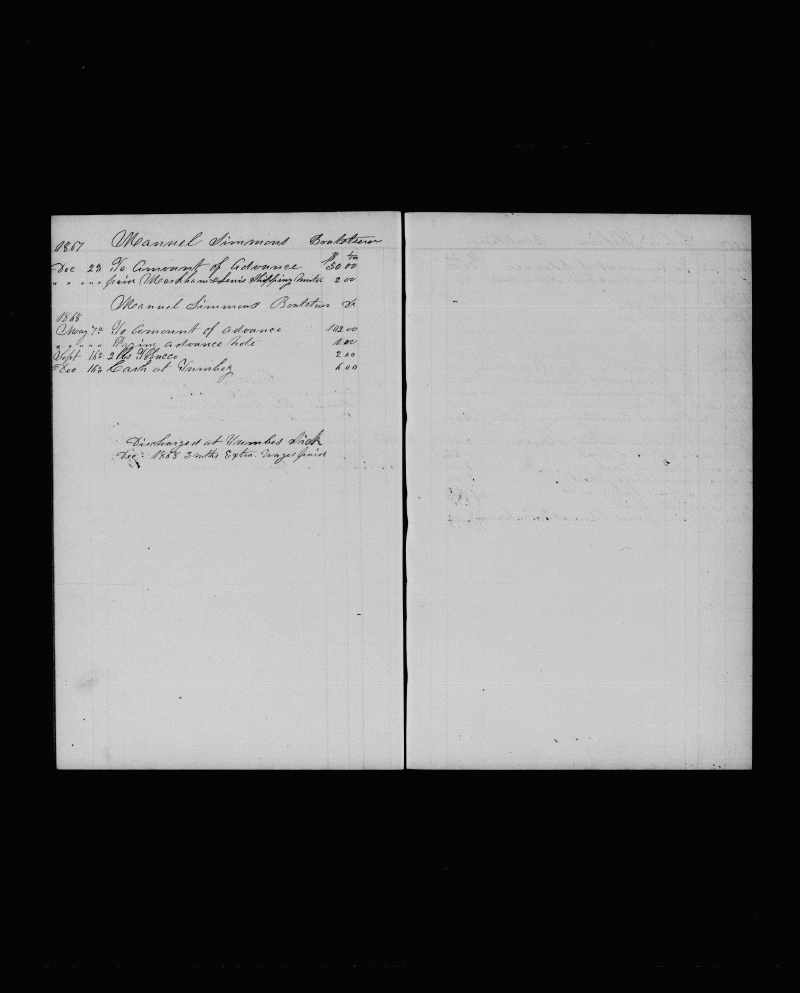 1867 Manuel Simmons Boatsteerer
$ cts
Dec 23 To Amount of Advance 50 00
" " " " paid Markham & Lewis Shipping Master 2 00
Manuel Simmons Boatsteer Dr
1868
May 7th To Amount of advance 102 00
" " " " advance Note 1 00
Sept 16th 2 lbs Tobacco 2 00
Dec 16th Cash at Tumbez 6 00
Discharged at Tumbes Sick
Dec: 1868 3 mths Extra Wages paid